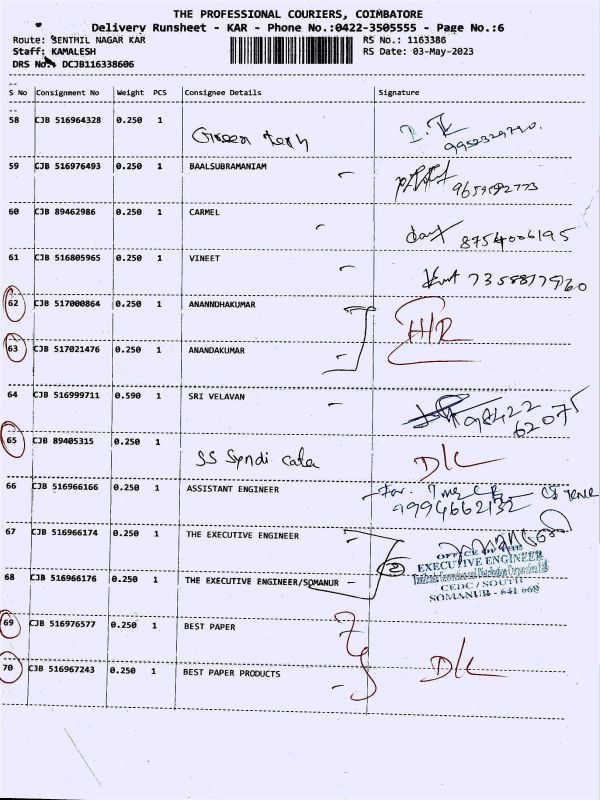 THE PROFESSIONAL COURIERS, COIMBATORE
Delivery Runsheet - KAR - Phone No.:0422-3505555 - Page No.:6
Route: SENTHIL NAGAR KAR RS No.: 1163386
Staff: KAMALESH RS Date: 03-May-2023
DRS No.: DCJB116338606
S No Consignment No Weight PCS Consignee Details Signature
58 CJB 516964328 0.250 1 Green tech
59 CJB 516976493 0.250 1 BAALSUBRAMANIAM 9659592773
60 CJB 89462986 0.250 1 CARMEL 8754006195
61 CJB 516805965 0.250 1 VINEET
62 CJB 517000864 0.250 1 ANANNDHAKUMAR
63 CJB 517021476 0.250 1 ANANDAKUMAR
H/R
64 CJB 516999711 0.590 1 SRI VELAVAN 98422
62075
65 CJB 89405315 0.250 1 SS Syndicate D/L
66 CJB 516966166 0.250 1 ASSISTANT ENGINEER
9994662132
67 CJB 516966174 0.250 1 THE EXECUTIVE ENGINEER
68 CJB 516966176 0.250 1 THE EXECUTIVE ENGINEER/SOMANUR 2
OFFICE OF THE
EXECUTIVE ENGINEER
CEDC / SOUTH
SOMANUR - 641 668
69 CJB 516976577 0.250 1 BEST PAPER
70 CJB 516967243 0.250 1 BEST PAPER PRODUCTS D/L